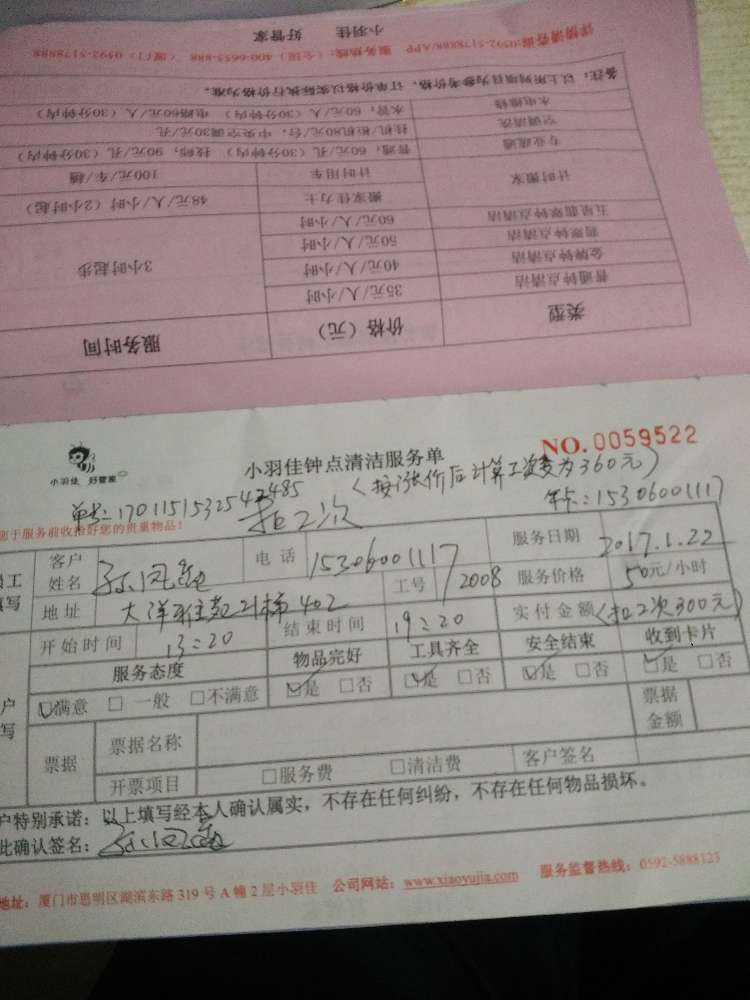 类型 价格（元） 服务时间
普通钟点清洁 35元/人/小时 3小时起步
金牌钟点清洁 40元/人/小时
翡翠钟点清洁 50元/人/小时
五星翡翠钟点清洁 60元/人/小时
计时搬家 搬家佳力士 48元/人/小时（2小时起）
计时用车 100元/车/趟
专业疏通 普通：60元/孔（30分钟内） 技师：90元/孔（30分钟内）
空调清洗 挂机/柜机80元/台，中央空调30元/孔
水电维修 水管：60元/人（30分钟内） 电路60元/人（30分钟内）
备注：以上所列项目为参考价格，订单价格以实际执行价格为准。
详情请咨询:0592-5178888/APP 服务热线：（全国）400-6655-888 （厦门）0592-5178888
小羽佳 好管家
小羽佳 好管家
小羽佳钟点清洁服务单
NO. 0059522
（按涨价后计算工资为360元）
单号：17011515325424485 扣2次 年卡：15306001117
您于服务前收拾好您的贵重物品！
客户姓名 电话 15306001117 服务日期 2017.1.22
地址 大洋 21梯402 工号 2008 服务价格 50元/小时
开始时间 13：20 结束时间 19：20 实付金额（扣2次300元）
服务态度 物品完好 工具齐全 安全结束 收到卡片
☑满意 □一般 □不满意 ☑是 □否 ☑是 □否 ☑是 □否 ☑是 □否
票据 票据名称 票据金额
开票项目 □服务费 □清洁费 客户签名
户特别承诺：以上填写经本人确认属实，不存在任何纠纷，不存在任何物品损坏。
此确认签名：
地址：厦门市思明区湖滨东路319号A幢2层小羽佳 公司网站：www.xiaoyujia.com 服务监督热线：0592-5888123